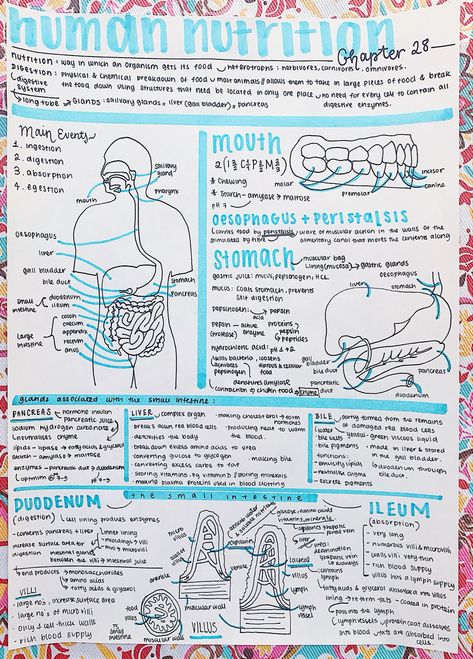 human nutrition
Chapter 28
nutrition: way in which an organism gets its food
heterotrophs: herbivores, carnivores, omnivores.
DIGESTION: physical & chemical breakdown of food
most animals // allows them to take in large pieces of food & break
digestive system
the food down using structures that need be located in only one place
no need for every cell to contain all digestive enzymes.
long tube
glands: salivary glands = liver (gall bladder) = pancreas
Main Events
1. ingestion
2. digestion
3. absorption
4. egestion
salivary gland
pharynx
mouth
oesophagus
liver
gall bladder
bile duct
stomach
pancreas
small intestine
duodenum
ileum
large intestine
colon
caecum
appendix
rectum
anus
mouth
* chewing
* starch - amylase → maltose
pH 7
molar
premolar
canine
incisor
oesophagus + peristalsis
carries food by peristalsis
wave of muscular action in the walls of the
stimulated by fibre
alimentary canal that moves the contents along
stomach
muscular bag
lining (mucosa)
gastric glands
gastric juice: mucus, pepsinogen, HCl
mucus: coats stomach, prevents
self digestion
pepsinogen
acid
pepsin
pepsin - active
(protease) enzyme
proteins
pepsin
peptides
hydrochloric acid:
kills bacteria, loosens
activates pepsinogen
fibrous & cellular food
denatures amylase
contraction by churn food
enzyme
oesophagus
liver
stomach
gall bladder
bile duct
pancreatic duct
duodenum
pancreas
glands associated with the small intestine:
PANCREAS
hormone insulin
pancreatic juice
sodium hydrogen carbonate
neutralises
enzyme
lipids - lipase → fatty acids & glycerol
starch - amylase → maltose
enzymes - pancreatic duct → duodenum
LIVER
complex organ
making cholesterol → hormones
breaks down red blood cells
producing heat to warm
detoxifies the body
the blood.
breaks down excess amino acids to urea
converting glucose to glycogen
making bile
converting excess carbs to fat
storing vitamins
storing minerals
making plasma proteins used in blood clotting
BILE
partly formed from the remains
of damaged red blood cells
water
bile salts
yellow-green viscous liquid
bile pigments
made in liver & stored
in the gall bladder.
functions:
emulsify lipids
duodenum through
neutralise chyme
bile duct.
excrete pigments
the small intestine
DUODENUM
(digestion)
cell lining produces enzymes
contents pancreas + liver
increase surface area for digestion
inner lining
microvilli
intestinal glands
end products
monosaccharides
amino acids
fatty acids & glycerol
VILLI
large no's, increase surface area
large no's of microvilli
only 1 cell thick walls
rich blood supply
food
villus
muscular wall
TS small intestine
capillaries
arteriole
venule
muscular wall
VILLUS
lacteal
lymph vessel
glucose, amino acids,
vitamins, minerals
hepatic portal vein
liver
lymph
ILEUM
(absorption)
very long
numerous villi & microvilli
walls villi very thin
rich blood supply
villus has a lymph supply
fatty acids & glycerol absorbed into villus
lining → reform fats → coated in protein
pass into the lymph
lymph vessels
protein coat dissolves
into blood
fats are absorbed into cells